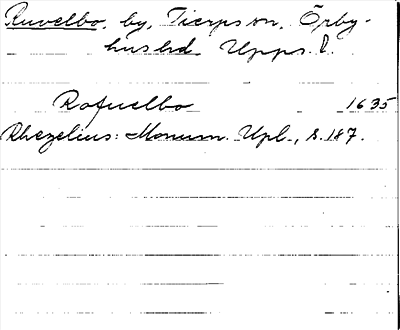 Ruvelbo, by, Tierps sn, Örby-
hus hd. Upps. l.
Rofuelbo 1635
Rhezelius: Monum. Upl., s. 187.